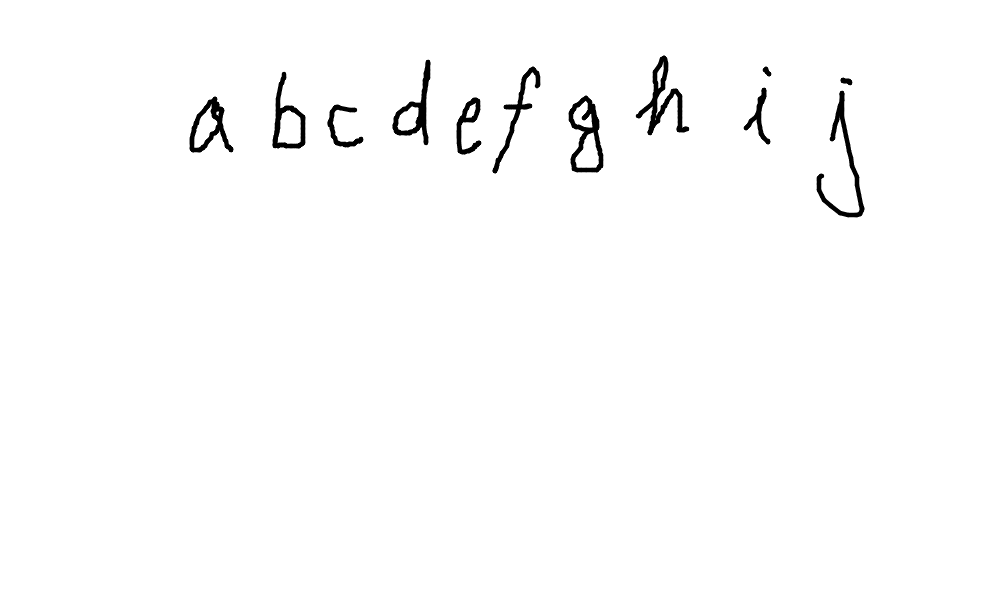 a b c d e f g h i j